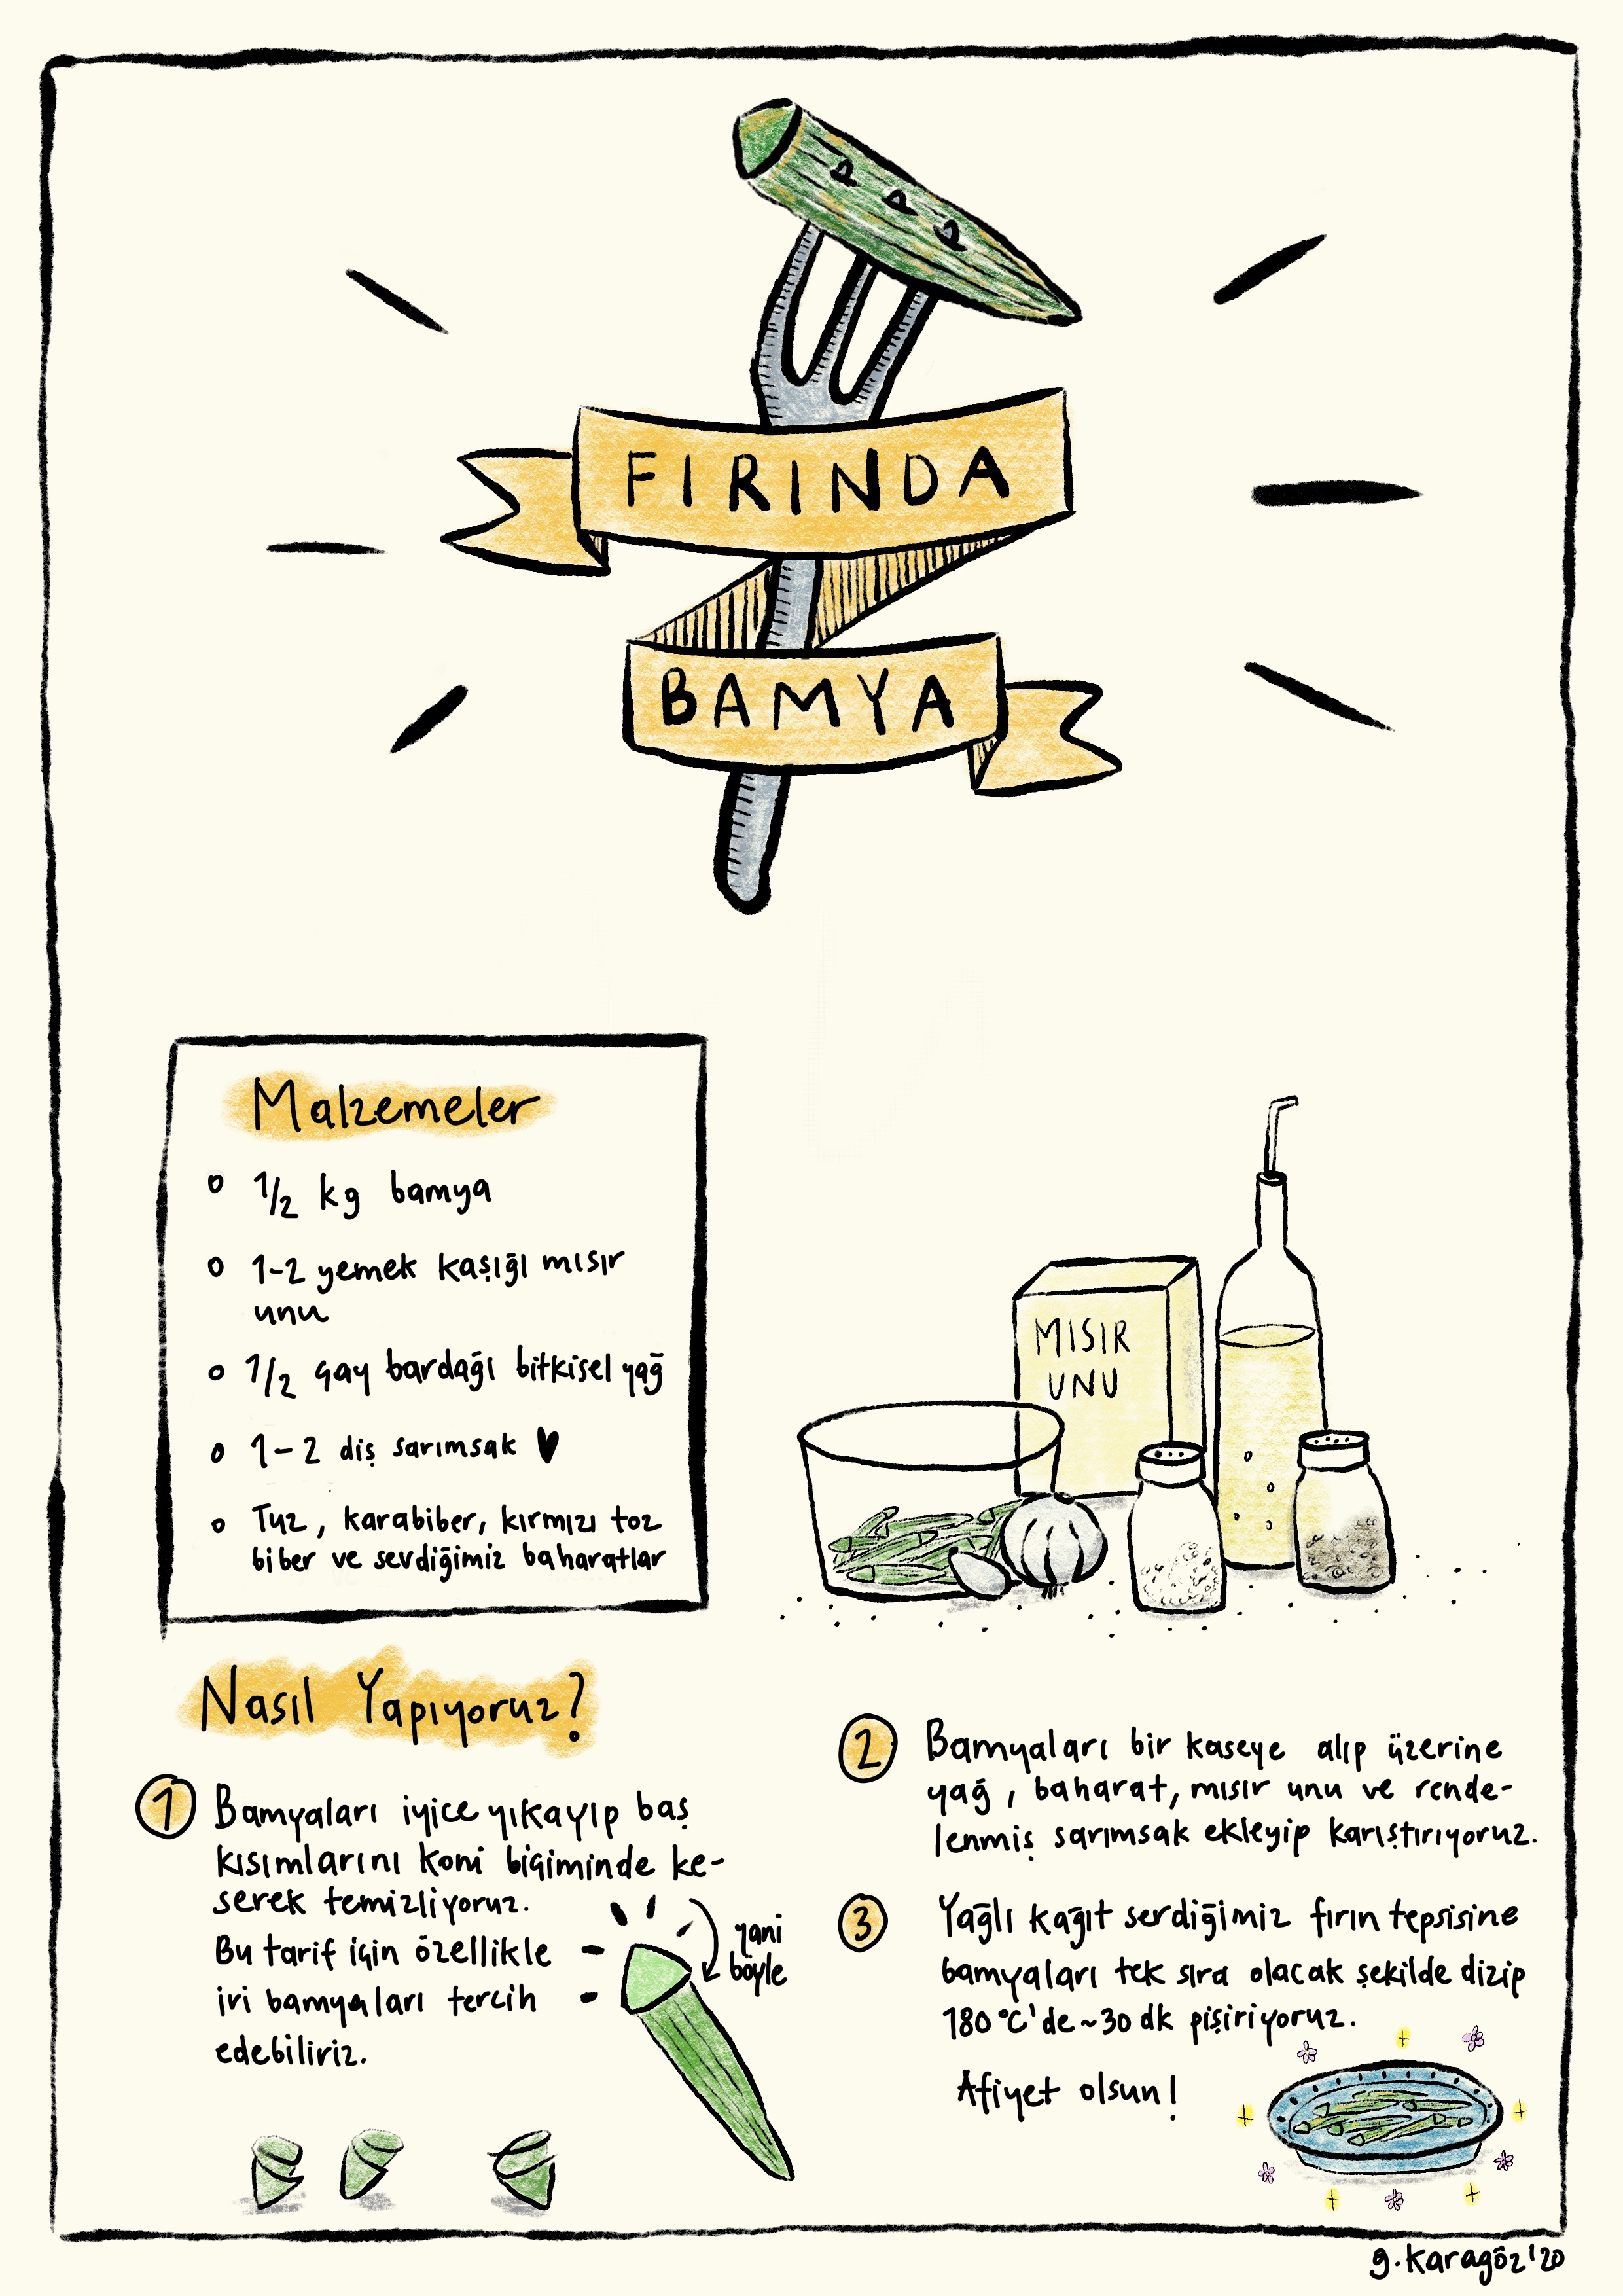 FIRINDA
BAMYA
Malzemeler
1/2 kg bamya
1-2 yemek kaşığı mısır
unu
1/2 çay bardağı bitkisel yağ
1-2 diş sarımsak ♥
Tuz, karabiber, kırmızı toz
biber ve sevdiğimiz baharatlar
MISIR
UNU
Nasıl Yapıyoruz?
1 Bamyaları iyice yıkayıp baş
kısımlarını koni biçiminde ke-
serek temizliyoruz.
Bu tarif için özellikle
iri bamyaları tercih
edebiliriz.
yani
böyle
2 Bamyaları bir kaseye alıp üzerine
yağ, baharat, mısır unu ve rende-
lenmiş sarımsak ekleyip karıştırıyoruz.
3 Yağlı kağıt serdiğimiz fırın tepsisine
bamyaları tek sıra olacak şekilde dizip
180 °C'de ~30 dk pişiriyoruz.
Afiyet olsun!
g.karagöz'20